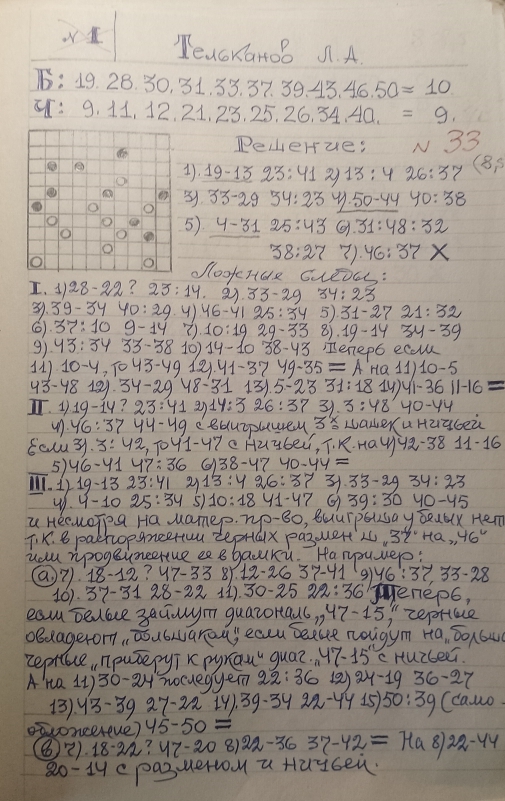 № 1
Тельканов Р Л.А.
Б: 19.28.30.31.33.37.39.43.46.50= 10
Ч: 9.11.12.21.23.25.26.34.40. = 9.
Решение: N 33
1). 19-13 23:41 2) 13:4 26:37
3). 33-29 34:23 4). 50-44 40:38
5) 4-31 25:43 6). 31:48:32
38:27 7). 46:37 X
Ложные следы:
I. 1) 28-22? 23:14. 2). 33-29 34:23
3). 39-34 40:29 4) 46-41 25:34 5). 31-27 21:32
6). 37:10 9-14 7). 10:19 29-33 8). 19-14 34-39
9). 43:34 33-38 10) 14-10 38-43 Теперь если
11). 10-4, то 43-49 12). 41-37 49-35 = А на 11) 10-5
43-48 12). 34-29 48-31 13). 5-23 31:18 14) 41-36 11-16 =
II. 1) 19-14? 23:41 2) 14:3 26:37 3). 3:48 40-44
4). 46:37 44-49 с выигрышем 3х шашек и ничьей
Если 3). 3:42, то 41-47 с ничьей, т.к. на 4) 42-38 11-16
5) 46-41 47:36 6) 38-47 40-44 =
III. 1). 19-13 23:41 2). 13:4 26:37 3). 33-29 34:23
4). 4-10 25:34 5) 10:18 41-47 6) 39:30 40-45
и несмотря на матер. пр-во, выигрыша у белых нет
т.к. в распоряжении черных размен ш „37" на „46"
или продвижение ее в дамки. Например:
а) 7). 18-12? 47-33 8) 12-26 37-41 9) 46:37 33-28
10). 37-31 28-22 11). 30-25 22:36 Теперь,
если белые займут диагональ „47-15", черные
овладеют „большаком", если белые пойдут на „больша
черные „приберут к рукам" диаг. „47-15" с ничьей.
А на 11) 30-24 последует 22:36 12) 24-19 36-27
13) 43-39 27-22 14). 39-34 22-44 15) 50:39 (само-
обложение) 45-50 =
в) 7). 18-22? 47-20 8) 22-36 37-42 = На 8) 22-44
20-14 с разменом и ничьей.